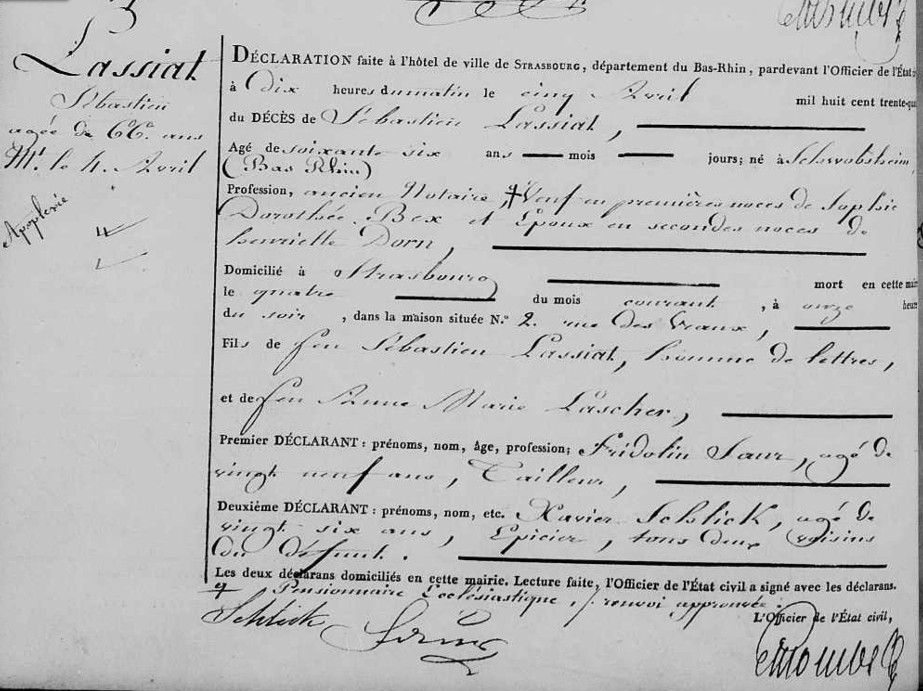 Lassiat
Sébastien
agée de 66. ans
Mt. le 4. Avril
Apoplexie
DÉCLARATION faite à l'hôtel de ville de STRASBOURG, département du Bas-Rhin, pardevant l'Officier de l'État
à Dix heures du matin le cinq Avril mil huit cent trente-qu
du DÉCÈS de Sébastien Lassiat,
Agé de soixante six ans mois jours; né à Schwobsheim
(Bas Rhin)
Profession, ancien Notaire, Veuf en premières noces de Sophie
Dorothée Bex et Epoux en secondes noces de
henriette Dorn,
Domicilié à Strasbourg mort en cette mai
le quatre du mois courant, à onze heure
du soir, dans la maison située N.° 2. rue des Veaux,
Fils de feu Sébastien Lassiat, homme de lettres,
et de feu Anne Marie Lascher,
Premier DÉCLARANT : prénoms, nom, âge, profession; Fridolin Saur, agé de
vingt neuf ans, Tailleur,
Deuxième DÉCLARANT : prénoms, nom, etc. Xavier Schlick, agé de
vingt six ans, Epicier, tous deux voisins
du défunt.
Les deux déclarans domiciliés en cette mairie. Lecture faite, l'Officier de l'État civil a signé avec les déclarans.
Pensionnaire Ecclésiastique, renvoi approuvée.
L'Officier de l'État civil,
Schlick